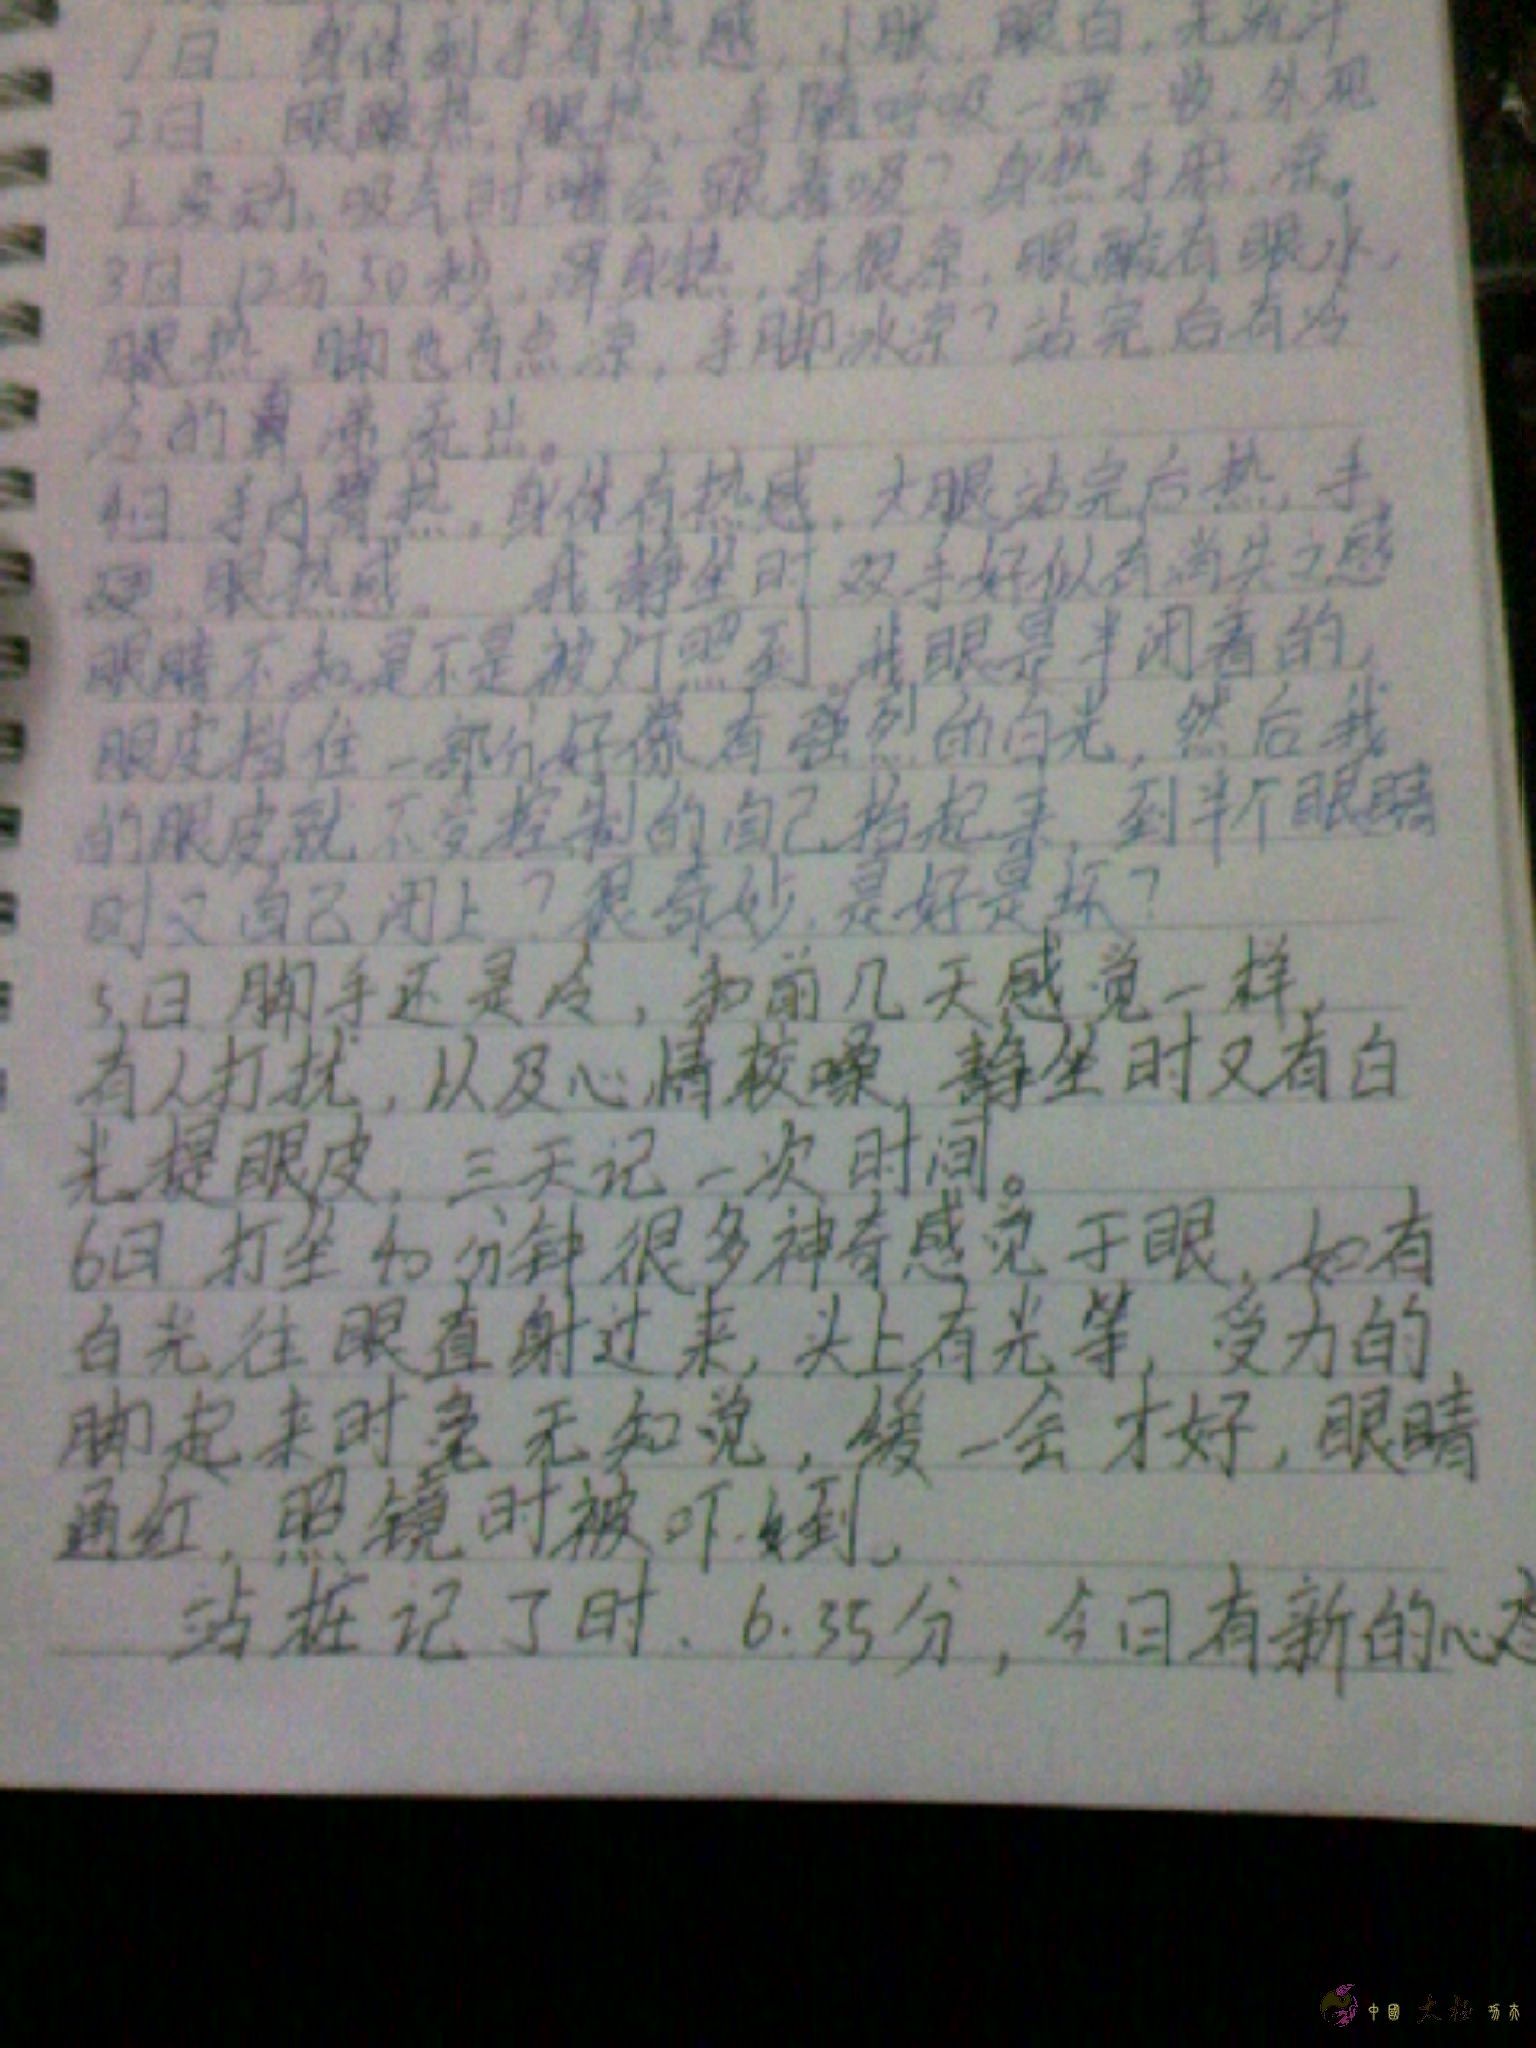 1日、身体到手有热感,小腿、眼白,
2日、眼酸热,眼热,手随呼吸一一,外观
上,吸气时嘴会跟着吸?身热手麻、凉。
3日 12分50秒,浑身热,手很凉,眼酸有眼水,
眼热,脚也有点凉,手脚冰凉?站完后有冷
冷的鼻涕流出。
4日 手内臂热,身体有热感,大眼站完后热,手
硬、眼热感。 我静坐时双手好似有消失之感
眼睛不知是不是被灯照到,我眼是半闭着的,
眼皮挡住一部分好像有强烈的白光,然后我
的眼皮就不受控制的自己抬起来,到半个眼睛
时又自己闭上?很奇妙,是好是坏?
5日 脚手还是冷,和前几天感觉一样,
有人打扰,以及心情校嗓,静坐时又有白
光提眼皮,三天记一次时间。
6日 打坐40分钟很多神奇感觉于眼,如有
白光往眼直射过来,头上有光等,受力的
脚起来时毫无知觉,缓一会才好,眼睛
通红,照镜时被吓到,
站桩记了时、6.35分,今日有新的心
中國太极功夫